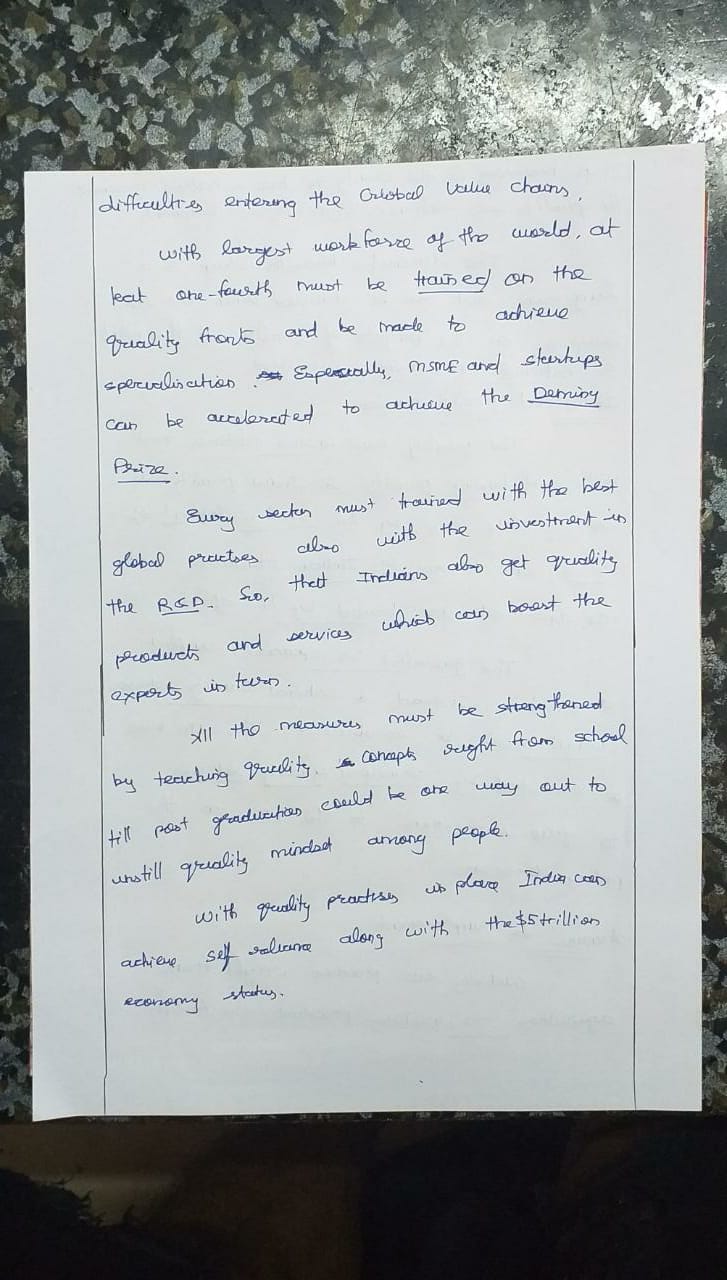 difficulties entering the Global Value chains,
with largest work force of the world, at
leat one-fourth must be trained on the
quality fronts and be made to achieve
specialisation. Especially, MSME and startups
can be accelerated to achieve the Deming
Prize.
Every sector must trained with the best
global practses also with the investment in
the R&D. So, that Indians also get quality
products and services which can boost the
exports in turn.
All the measures must be strengthened
by teaching quality concepts right from school
till post graduation could be one way out to
instill quality mindset among people.
With quality practises in place India can
achieve self reliance along with the $5 trillion
economy status.